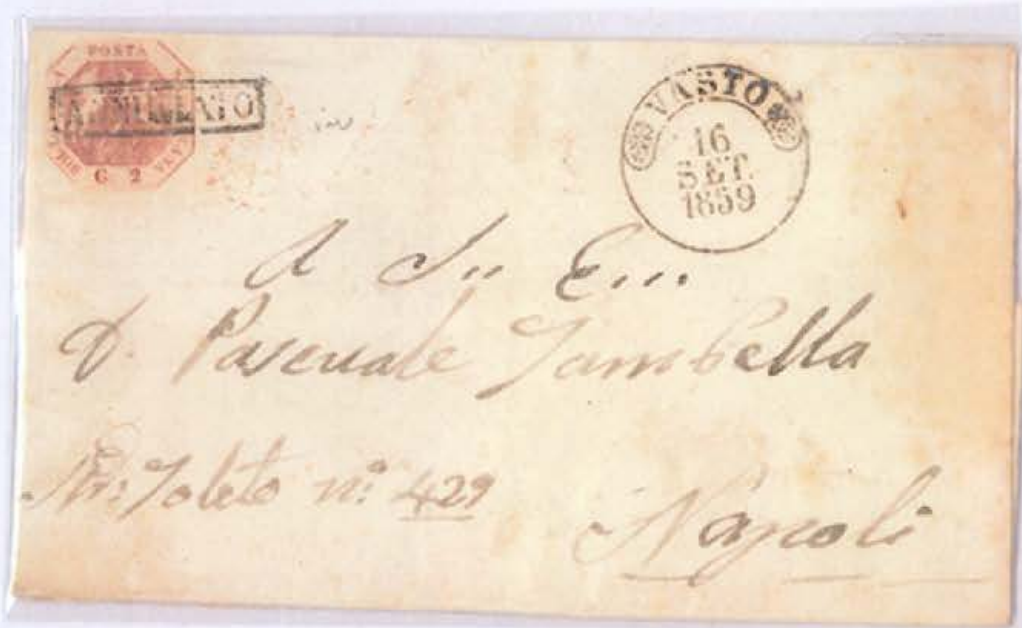 POSTA
ANNULLATO
G 2
VASTO
16
SET.
1859
A S.. E...
D. Pascuale Jambella
Str: Toleto nº 429
Napoli